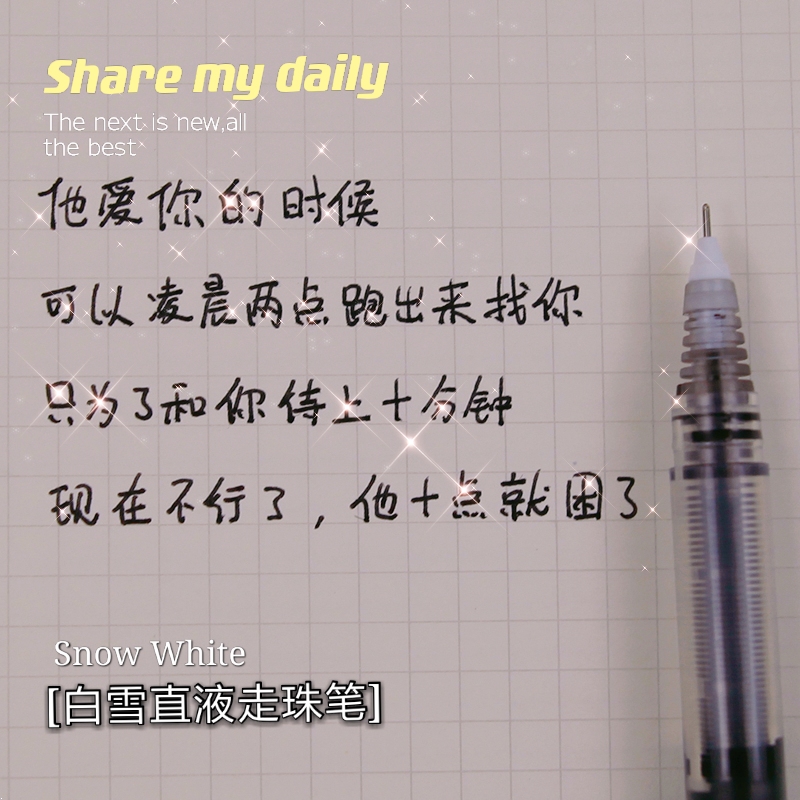 Share my daily
The next is new,all
the best
他爱你的时候
可以凌晨两点跑出来找你
只为了和你待上十分钟
现在不行了，他十点就困了
Snow White
[白雪直液走珠笔]